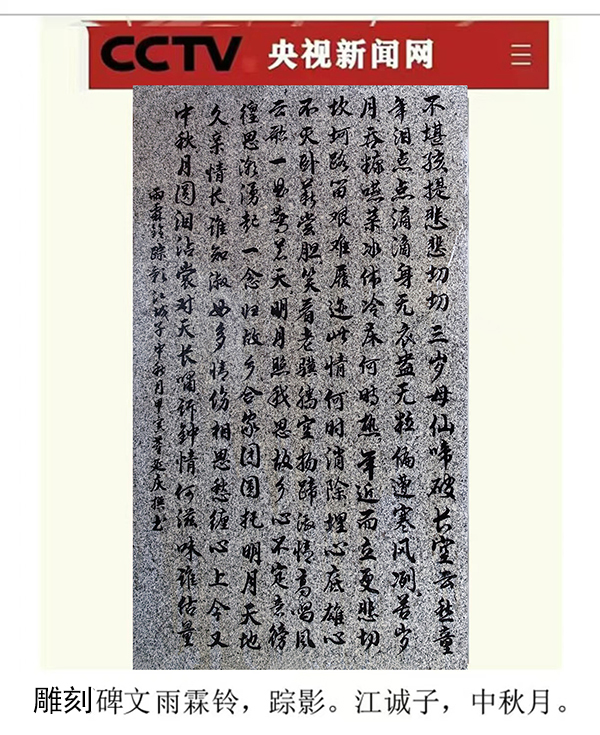 CCTV 央视新闻网
不堪孩提悲悲切切三岁母仙啼破长空云愁童
年泪点点滴滴身无衣盎无粒偏遭寒风冽苦岁
月吞糠咽菜冰体冷床何时熬年近而立更悲切
坎坷路留艰难履迹此情何时消除埋心底雄心
不灭卧薪尝胆笑看老骥腾空扬蹄激情高唱风
云歌一曲无天明月照我思故乡心不定意彷
徨思潮涌起一念归故乡合家团圆托明月天地
久亲情长谁知淑女多情伤相思愁缠心上今又
中秋月圆泪沾裳对天长啸诉钟情何滋味谁估量
雨霖铃踪影江城子中秋月甲午延庆撰书
雕刻碑文雨霖铃，踪影。江诚子，中秋月。